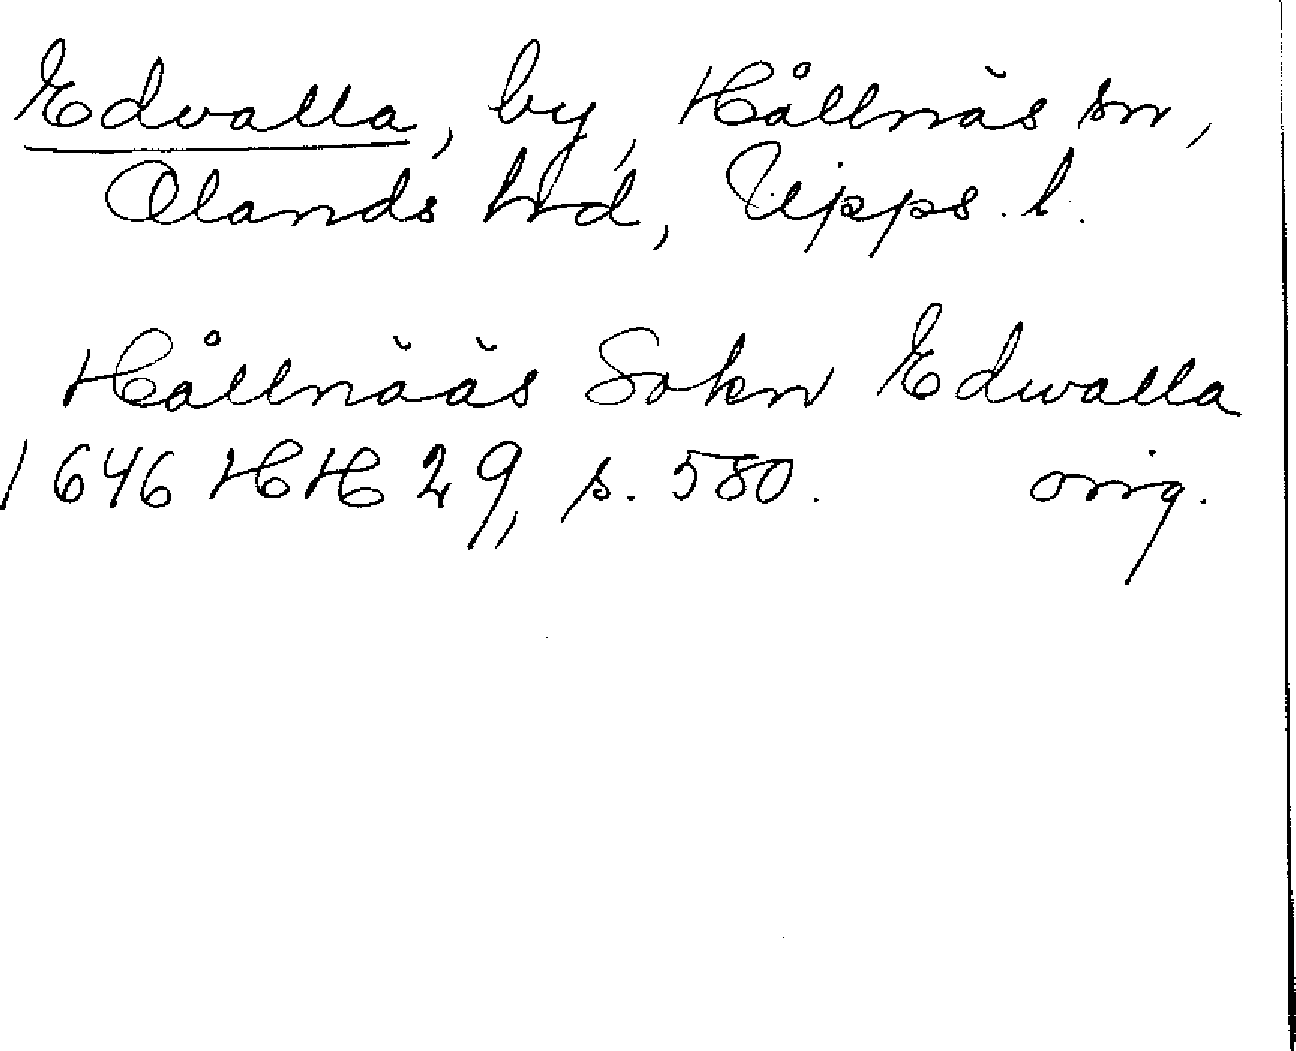 Edvalla, by, Hållnäs sn,
Olands hrd, Upps. l.
Hållnääs Sokn Edwalla
1646 HH 29, s. 580. orig.